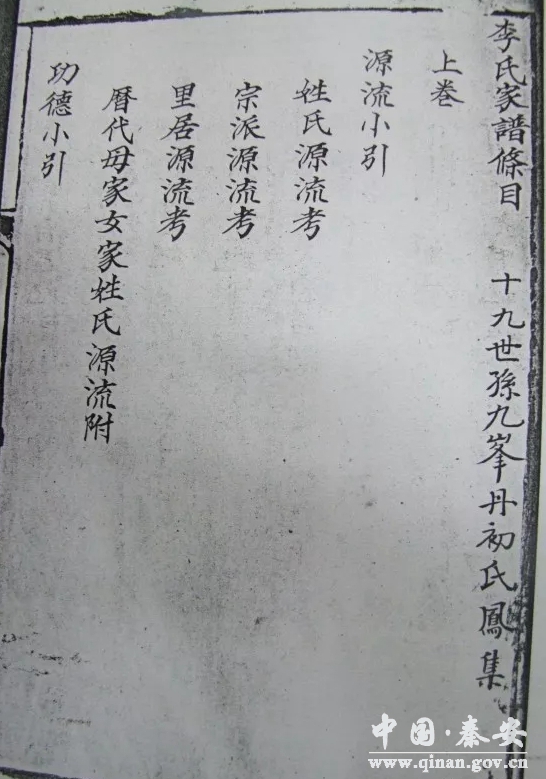 李氏家譜條目 十九世孫九峯丹初氏鳳集
上卷
源流小引
姓氏源流考
宗派源流考
里居源流考
曆代毋家女家姓氏源流附
功德小引
中国·秦安
www.qinan.gov.cn